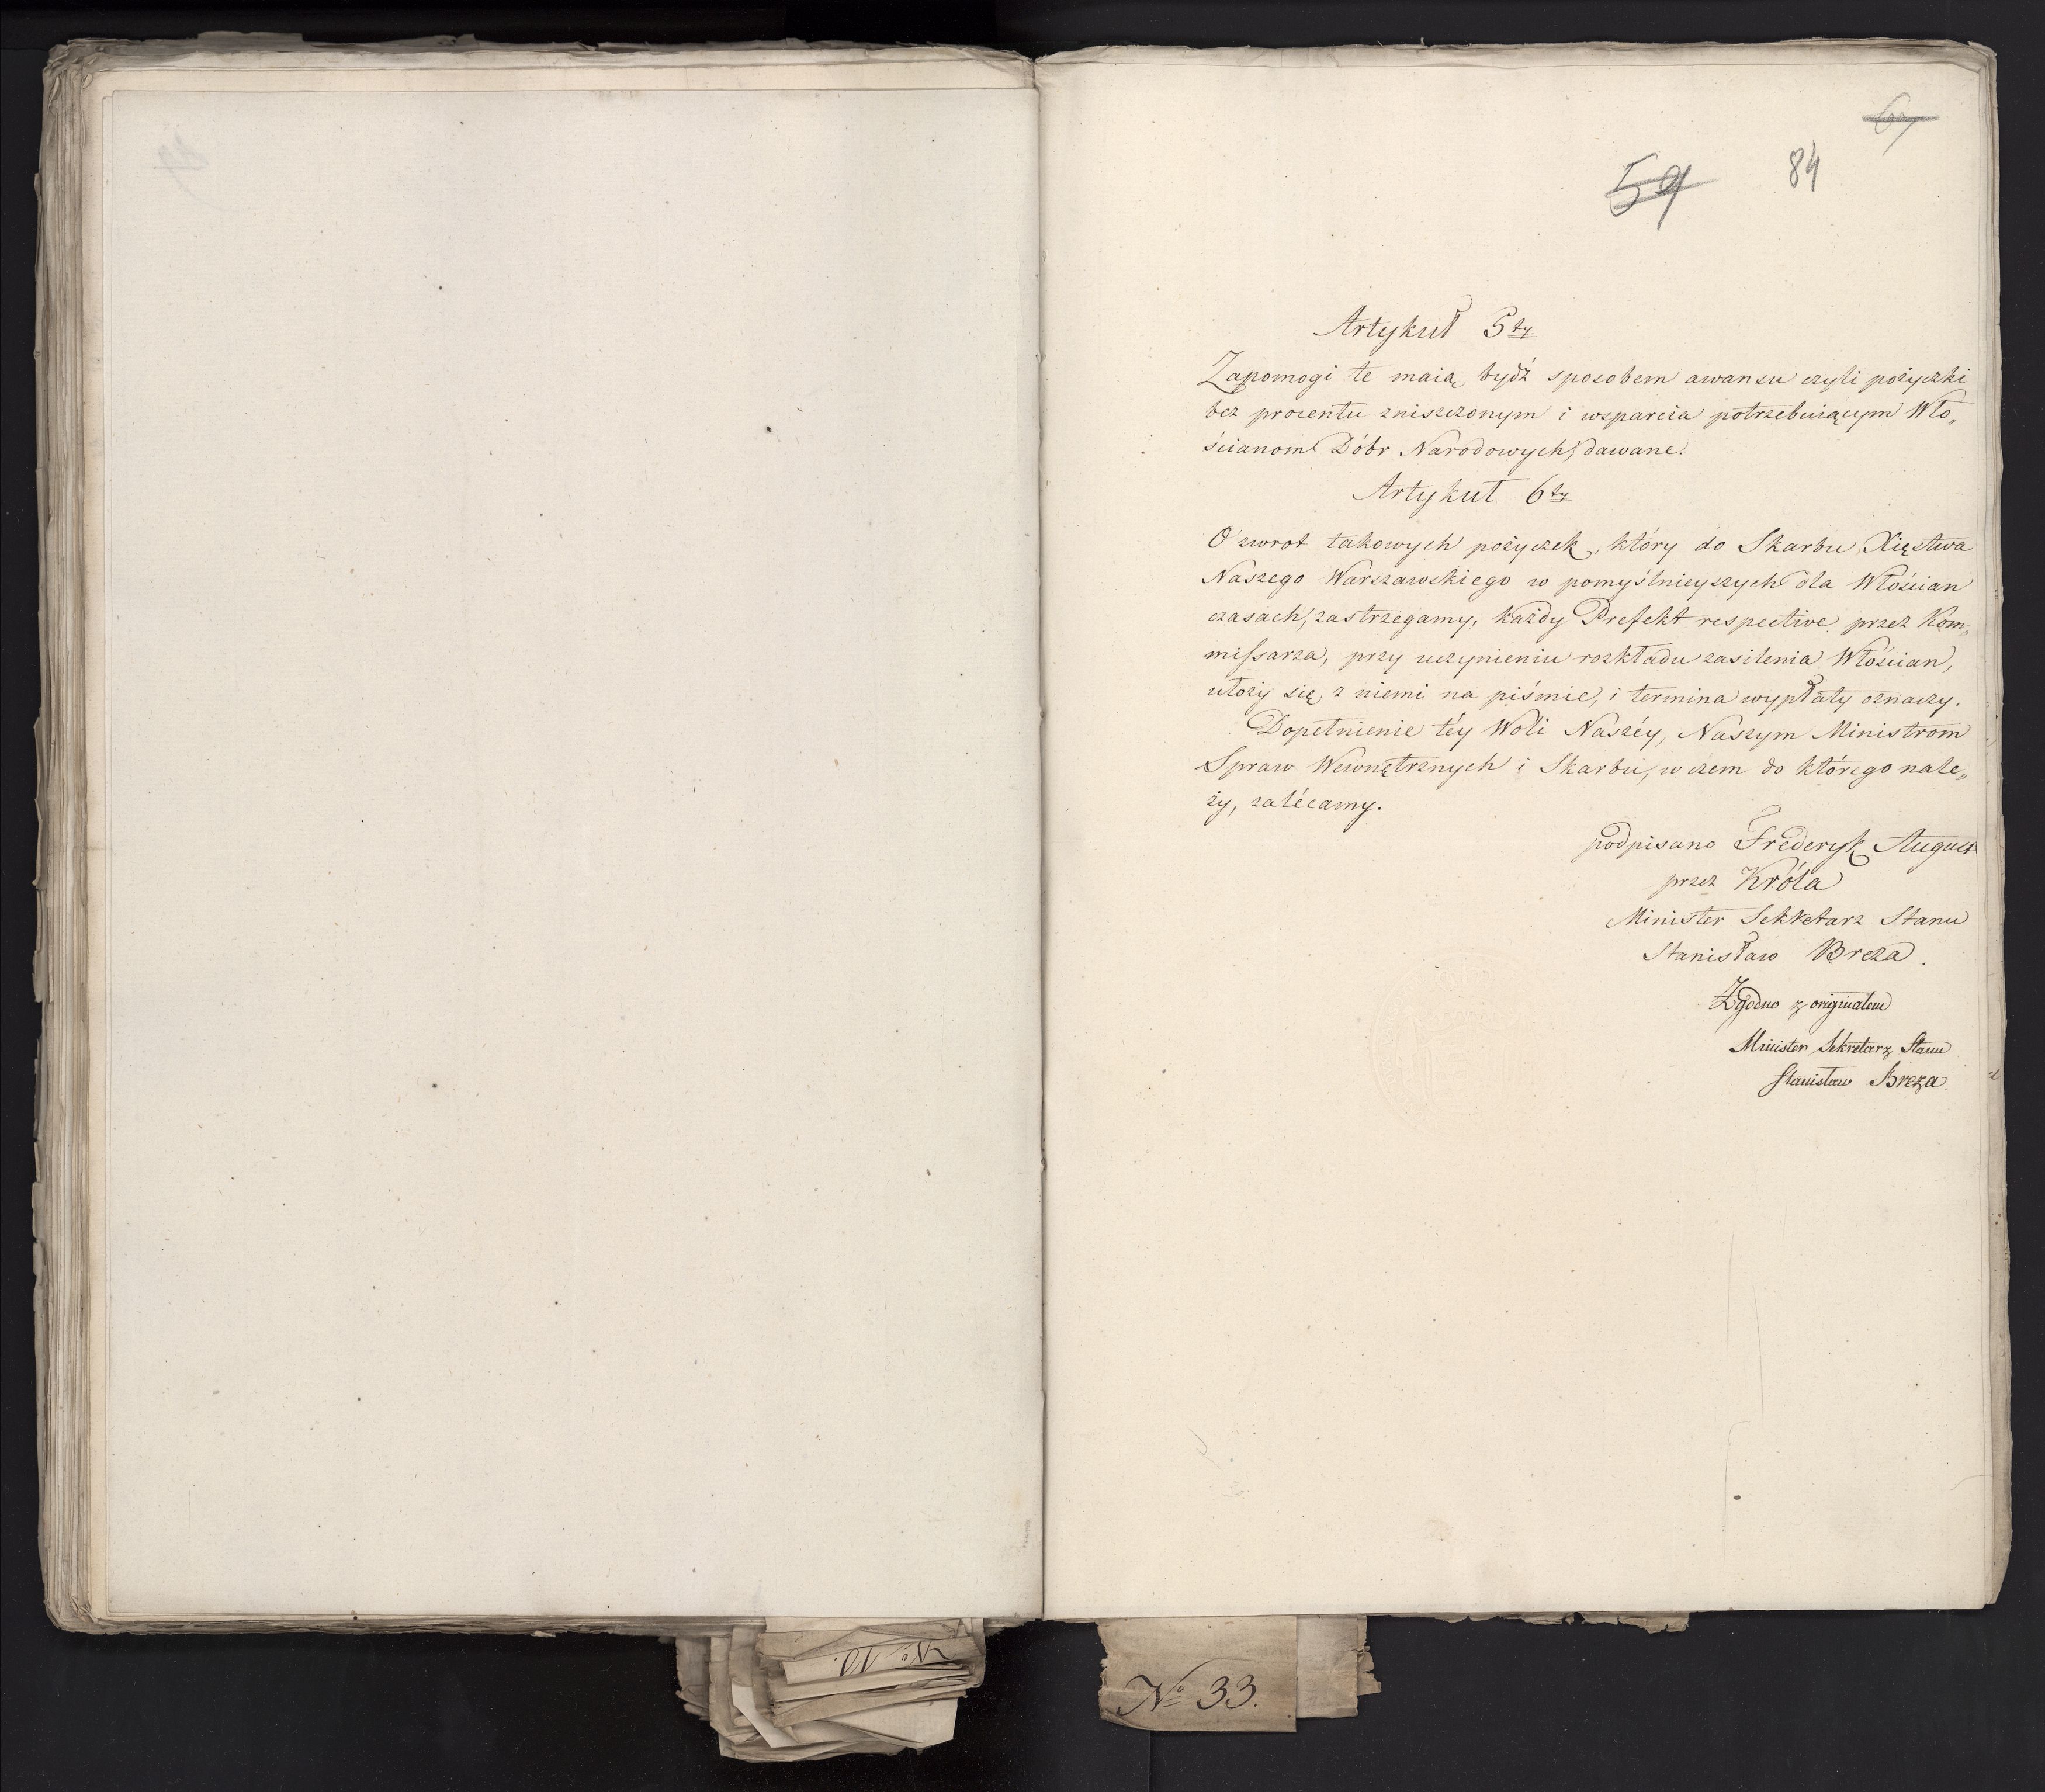 59
84
Artykuł 5ty
Zapomogi te maią bydź sposobem awansu czyli pożyczki
bez procentu zniszczonym i wsparcia potrzebuiącym Wło„
ścianom Dóbr Narodowych, dawane.
Artykuł 6ty
O zwrot takowych pożyczek, który do Skarbu Xięstwa
Naszego Warszawskiego w pomyślnieyszych dla Włościan
czasach, zastrzegamy, każdy Prefekt respective przez Kom„
missarza, przy uczynieniu rozkładu zasilenia Włościan,
ułoży się z niemi na piśmie, i termina wypłaty oznaczy.
Dopełnienie téy Woli Naszéy, Naszym Ministrom
Spraw Wewnętrznych i Skarbu, w czem do którego nale„
ży, zalécamy.
podpisano Frederyk August
przez Króla
Minister Sekretarz Stanu
Stanisław Breza.
Zgodno z originałem
Minister Sekretarz Stanu
Stanisław Breza.
No 10.
No 33.